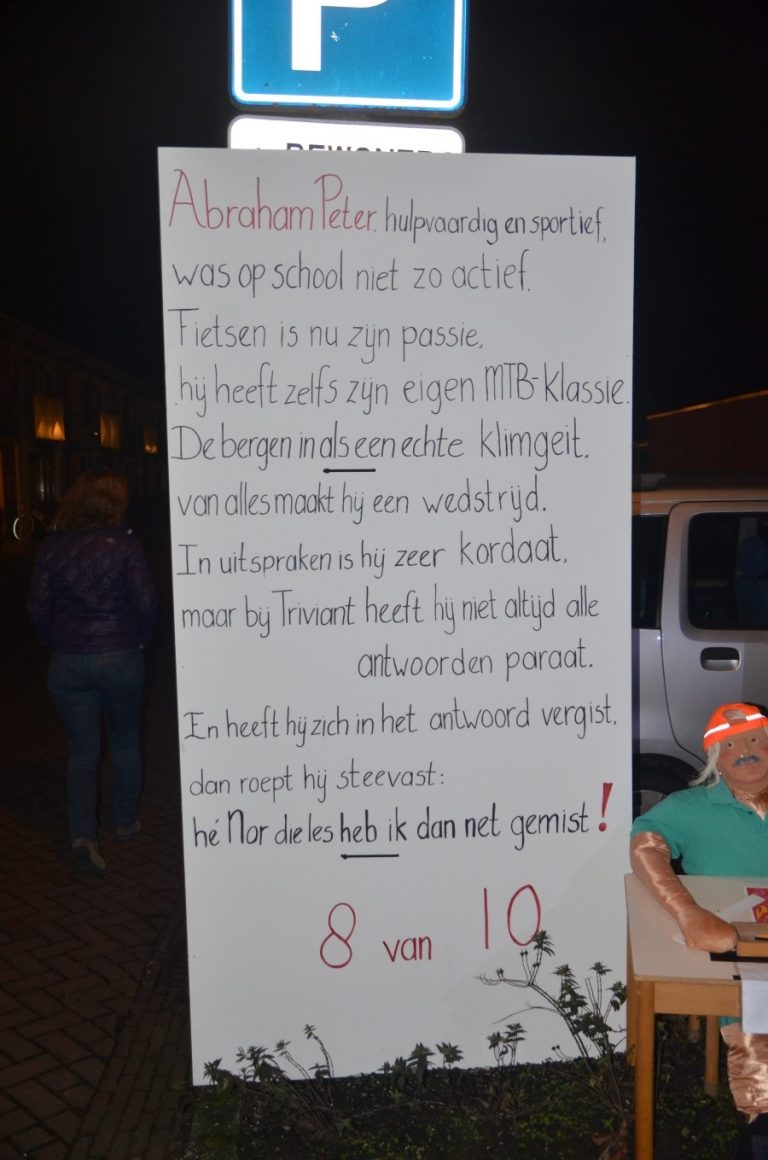 P
Abraham Peter. hulpvaardig en sportief,
was op school niet zo actief.
Fietsen is nu zijn passie,
hij heeft zelfs zijn eigen MTB-Klassie.
De bergen in als een echte klimgeit.
van alles maakt hij een wedstrijd.
In uitspraken is hij zeer kordaat,
maar bij Triviant heeft hij niet altijd alle
antwoorden paraat.
En heeft hij zich in het antwoord vergist,
dan roept hij steevast:
hé Nor die les heb ik dan net gemist!
8 van 10